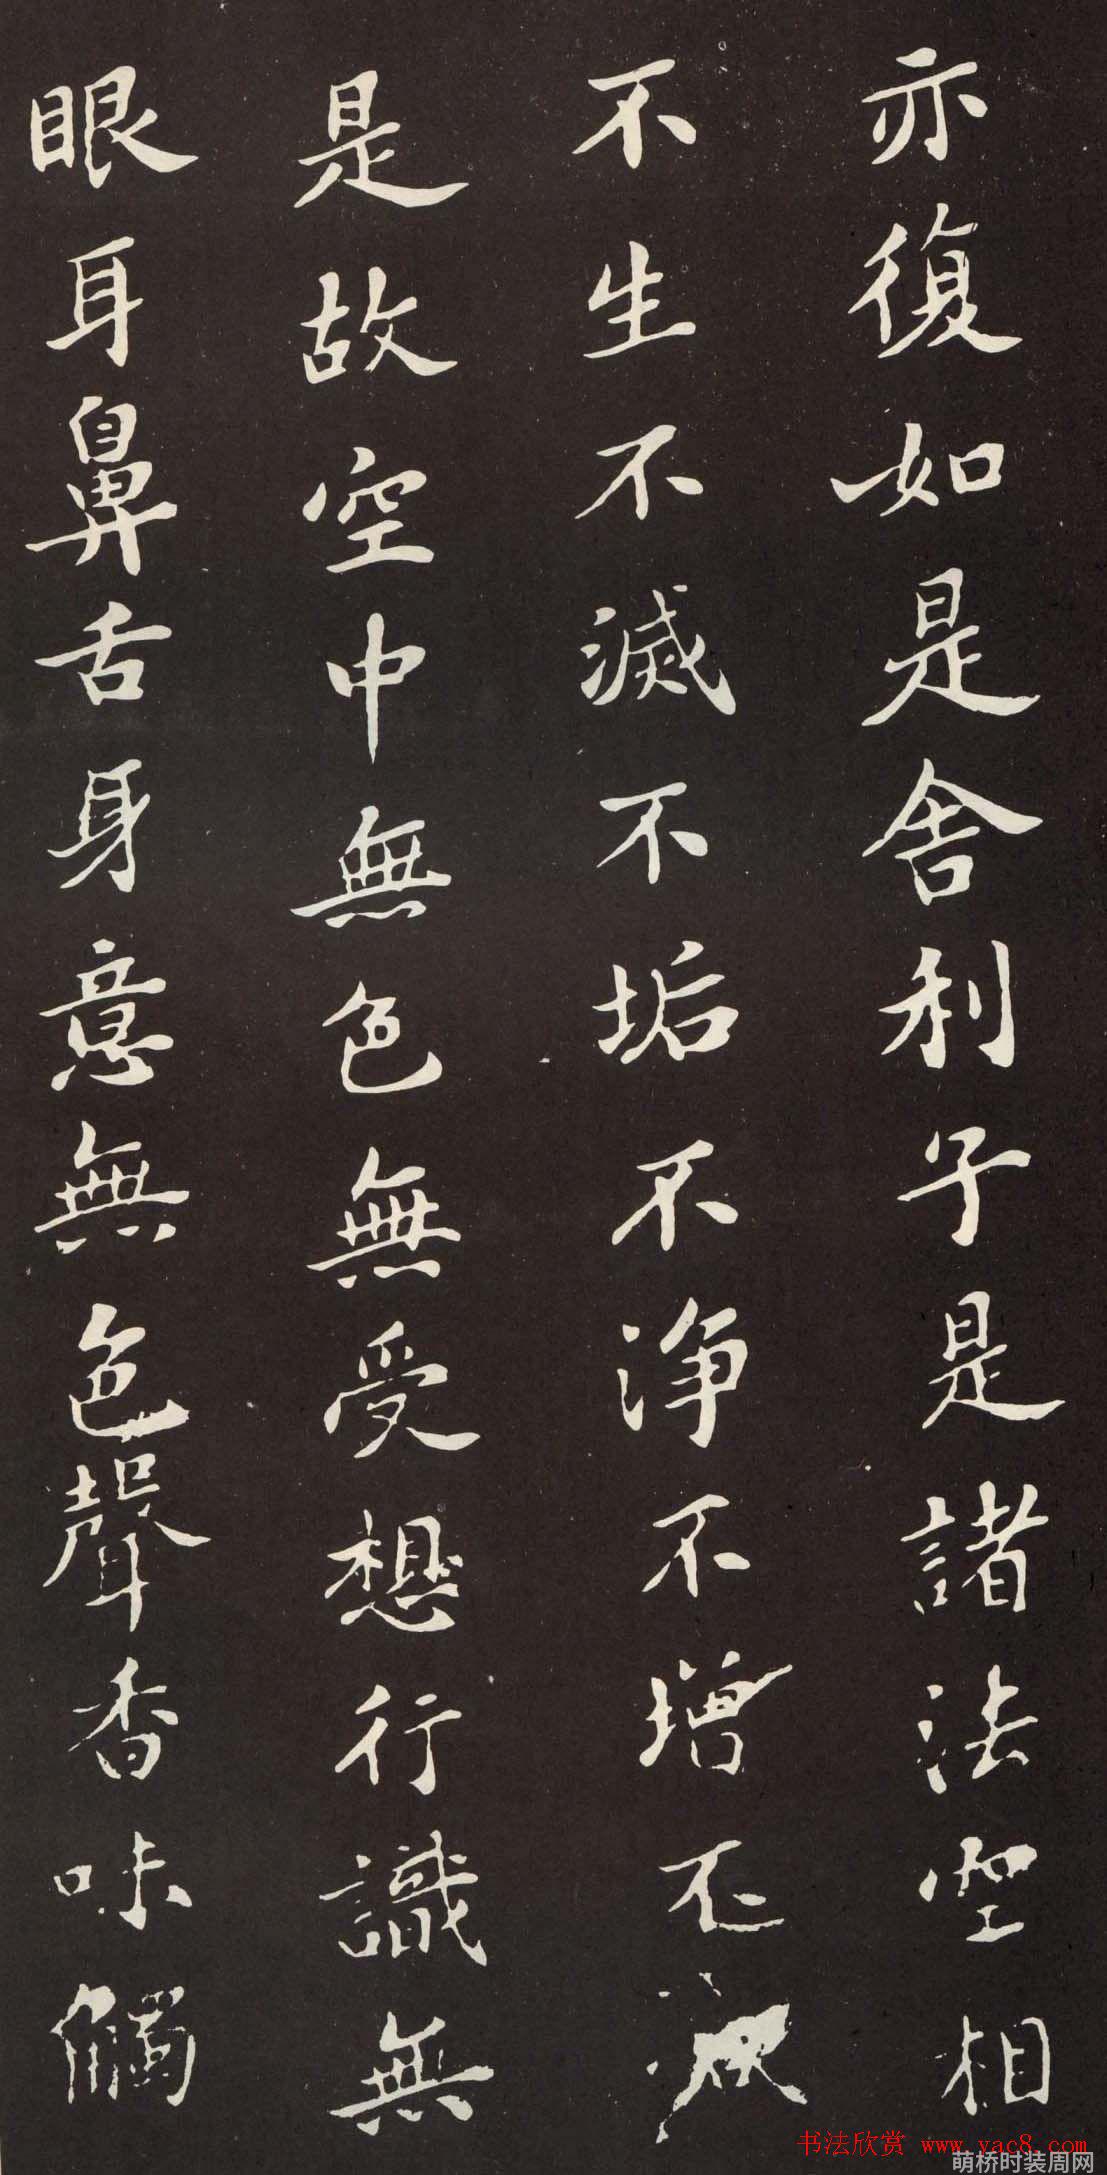 亦復如是舍利子是諸法空相
不生不滅不垢不淨不增不減
是故空中無色無受想行識無
眼耳鼻舌身意無色聲香味觸
书法欣赏 www.yac8.com
萌桥时装周网